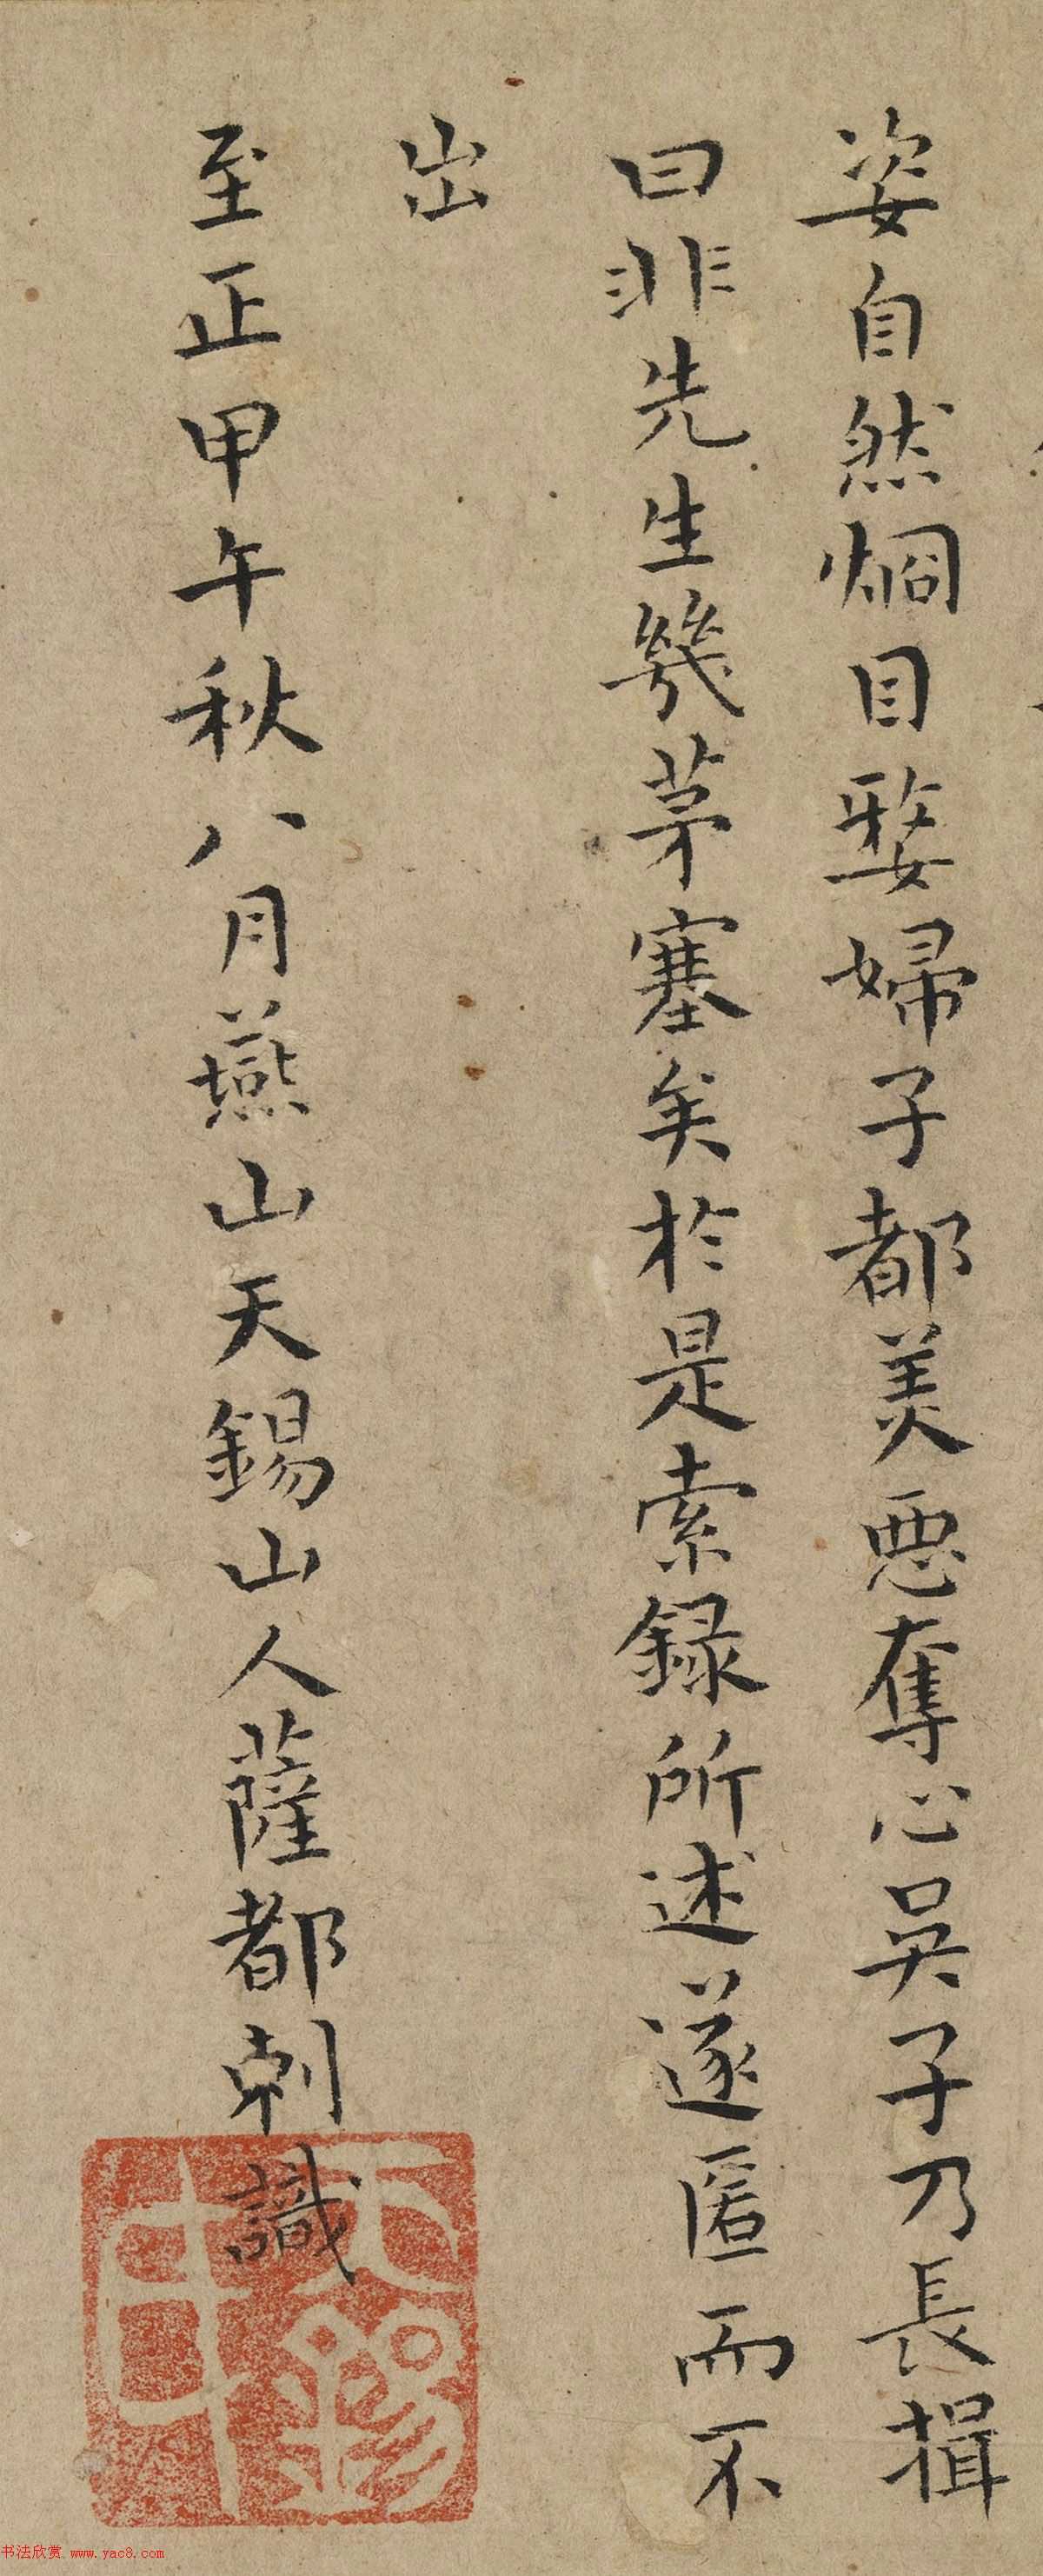 姿自然烱目婺婦子都美惡奪心吳子乃長揖
曰非先生幾茅塞矣於是索録所述遂匿而不
出
至正甲午秋八月燕山天錫山人薩都剌識
书法欣赏 www.yac8.com